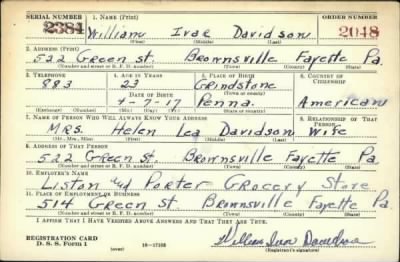 SERIAL NUMBER 1. NAME (Print) ORDER NUMBER
2384 William Ivar Davidson 2048
(First) (Middle) (Last)
2. ADDRESS (Print)
522 Green St. Brownsville Fayette Pa.
(Number and street or R. F. D. number) (Town) (County) (State)
3. TELEPHONE 4. AGE IN YEARS 5. PLACE OF BIRTH 6. COUNTRY OF CITIZENSHIP
883 23 Grindstone
DATE OF BIRTH
4-7-17 Penna. American
(Exchange) (Number) (Mo.) (Day) (Yr.) (State or country)
7. NAME OF PERSON WHO WILL ALWAYS KNOW YOUR ADDRESS 8. RELATIONSHIP OF THAT PERSON
Mrs. Helen Lea Davidson Wife
(Mr., Mrs., Miss) (First) (Middle) (Last)
9. ADDRESS OF THAT PERSON
522 Green St. Brownsville Fayette Pa
(Number and street or R. F. D. number) (Town) (County) (State)
10. EMPLOYER'S NAME
Liston and Porter Grocery Store
11. PLACE OF EMPLOYMENT OR BUSINESS
514 Green St Brownsville Fayette Pa
(Number and street or R. F. D. number) (Town) (County) (State)
I AFFIRM THAT I HAVE VERIFIED ABOVE ANSWERS AND THAT THEY ARE TRUE.
REGISTRATION CARD
D. S. S. Form 1 (over) 16-17105 William Ivar Davidson
(Registrant's signature)